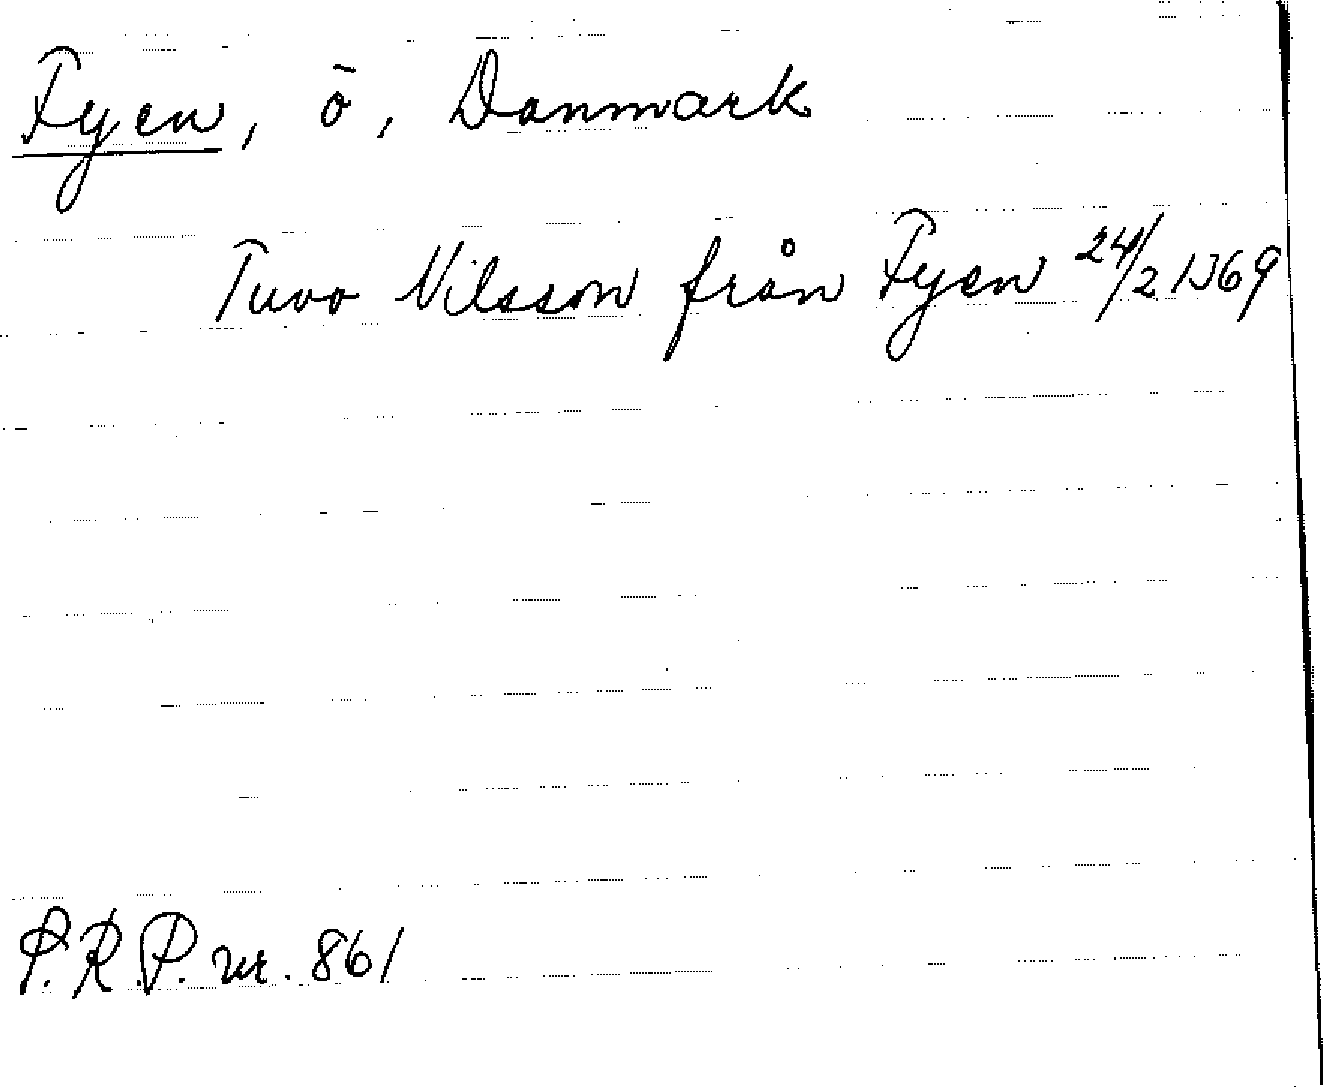 Fyen, ö, Danmark
Tuvo Nilsson från Fyen 24/2 1369
P.R.P. nr. 861